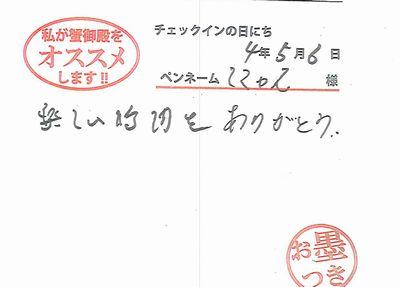 私が蟹御殿を
オススメ
します!!
チェックインの日にち
4年5月6日
ペンネーム 様
楽しい時間を ありがとう.
お墨
つき